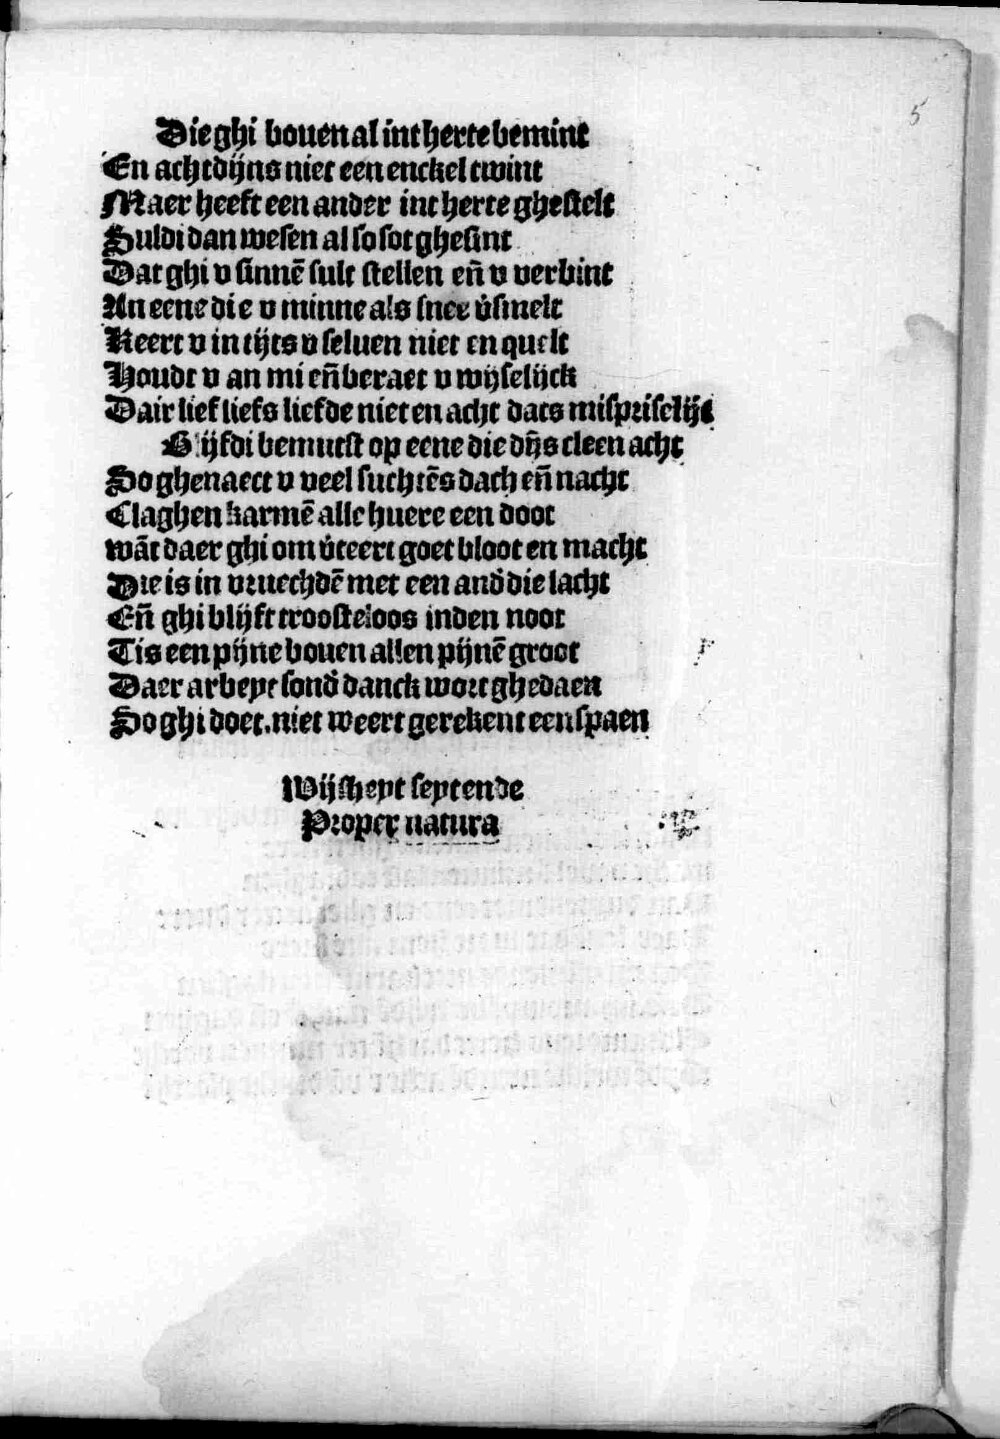 5
Die ghi bouen al int herte bemint
En acht dijns niet een enckel twint
Maer heeft een ander int herte ghestelt
Suldi dan wesen al so sot ghesint
Dat ghi v sinnē sult stellen eñ v verbint
An eene die v minne als snee v̓smelt
Keert v in tijts v seluen niet en quelt
Houdt v an mi eñ beraet v wijselijck
Dair lief liefs liefde niet en acht dats misprijselijc
Blijfdi bemutst op eene die dijs cleen acht
So ghenaect v veel suchtēs dach eñ nacht
Claghen karmē alle huere een doot
wāt daer ghi om v̓teert goet bloot en macht
Die is in vruechdē met een and̓ die lacht
Eñ ghi blijft troosteloos inden noot
Tis een pijne bouen allen pijnē groot
Daer arbeyt sond̓ danck wort ghedaen
So ghi doet. niet weert gerekent een spaen
Wijsheyt septende
Proper natura